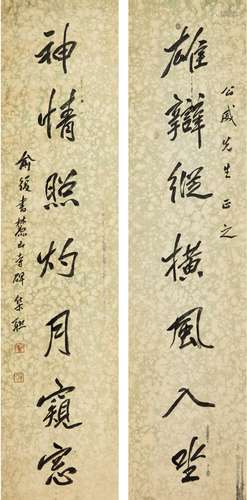 公威先生正之
雄辯縱橫風入坐
神情照灼月窺窓
俞緩書麓山寺碑集聯